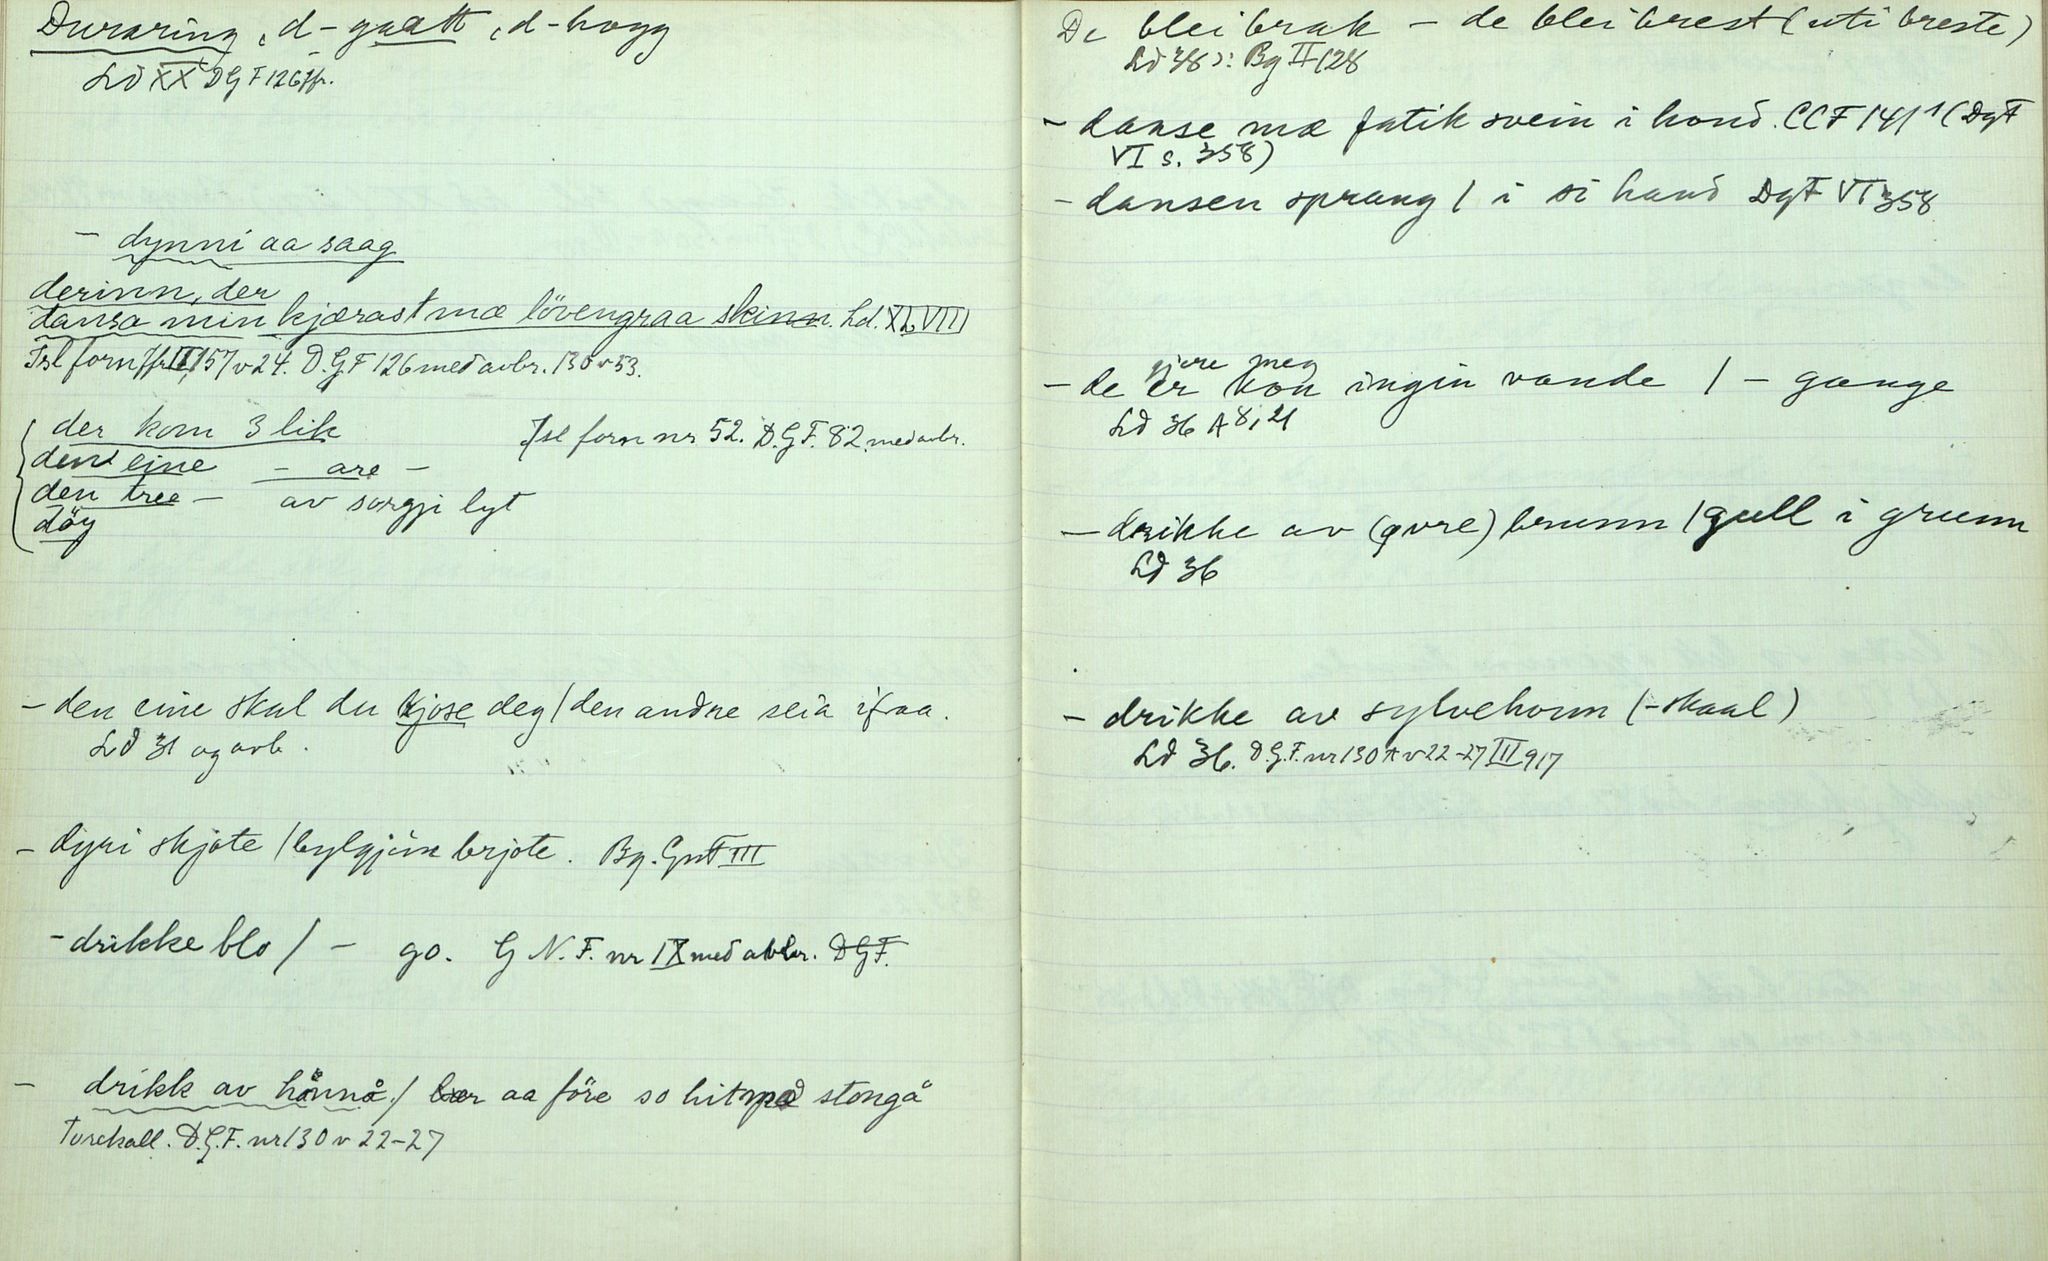 Duraring, d-gaatt, d-hogg
Ld XX DGF 126 jfr.
- dynni aa saag
derinn, der
dansa min kjærast mæ lövengraa skinn. Ld. XLVIII
Isl forn jfr III 157 v 24. D.G.F 126 med avbr. 130 v 53.
der kom 3 lik Isl forn nr 52. D.G.F. 82 med avbr.
den eine - are -
den tree - av sorgji lyt
döy
- den eine skal du kjose deg / den andre seia ifraa.
Ld 31 og avb.
- dyri skjote / bylgjun brjote. Bg. Gnf III
- drikke blo / - go. G N. F. nr IX med avbr. DGF.
- drikk av hånnå / bær aa före so hit stongå
Torekall. D.G.F. nr 130 v 22-27
De blei brak - de blei brest (uti breste)
Ld 38 ): Bg II 128
- danse mæ fatik svein i hond. CCF 141 1 (DgF
VI s. 358)
- dansen sprang / i si hand DgF VI 358
gjere meg
- de er kon ingin vande / - gange
Ld 36 A 8, 21
- drikke av (gvre) brunn / gull i grunn
Ld 36
- drikke av sylvehorn (-skaal)
Ld 36. D.G.F. nr 130 A v 22-27 III 917